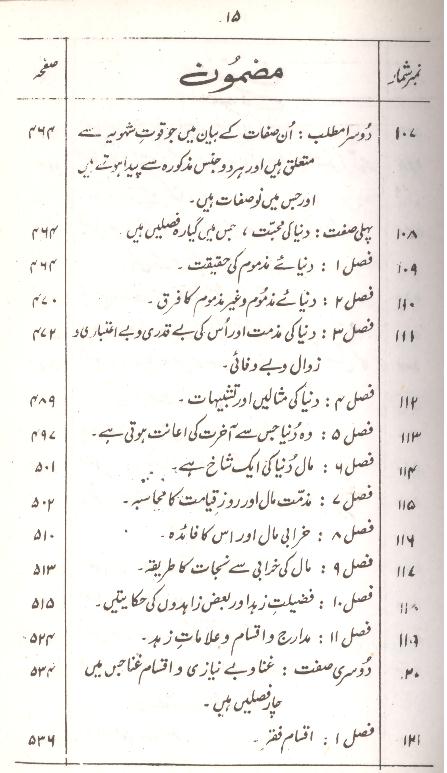 ۱۵
نمبر شمار مضمون صفحہ
۱۰۷ دوسرا مطلب : اُن صفات کے بیان میں جو قوتِ شہویہ سے ۴۶۴
متعلق ہیں اور ہر دو جنس مذکورہ سے پیدا ہوتے ہیں
اور جس میں نو صفات ہیں۔
۱۰۸ پہلی صفت : دنیا کی محبت ، جس میں گیارہ فصلیں ہیں ۴۶۴
۱۰۹ فصل ۱ : دنیائے مذموم کی حقیقت ۔ ۴۶۴
۱۱۰ فصل ۲ : دنیائے مذموم و غیر مذموم کا فرق ۔ ۴۷۰
۱۱۱ فصل ۳ : دنیا کی مذمت اور اُس کی بے قدری و بے اعتباری و ۴۷۲
زوال و بے وفائی ۔
۱۱۲ فصل ۴ : دنیا کی مثالیں اور تشبیہات ۔ ۴۸۹
۱۱۳ فصل ۵ : وہ دُنیا جس سے آخرت کی اعانت ہوتی ہے۔ ۴۹۷
۱۱۴ فصل ۶ : مال دُنیا کی ایک شاخ ہے۔ ۵۰۱
۱۱۵ فصل ۷ : مذمّت مال اور روزِ قیامت کا محاسبہ۔ ۵۰۲
۱۱۶ فصل ۸ : خرابی مال اور اس کا فائدہ ۔ ۵۱۰
۱۱۷ فصل ۹ : مال کی خرابی سے نجات کا طریقہ۔ ۵۱۳
۱۱۸ فصل ۱۰ : فضیلتِ زہد اور بعض زاہدوں کی حکایتیں۔ ۵۱۵
۱۱۹ فصل ۱۱ : مدارج و اقسام و علاماتِ زہد۔ ۵۲۴
۲۰ دُوسری صفت : غنا و بے نیازی و اقسام غنا جس میں ۵۳۴
چار فصلیں ہیں ۔
۱۲۱ فصل ۱ : اقسام فقر ۔ ۵۳۶